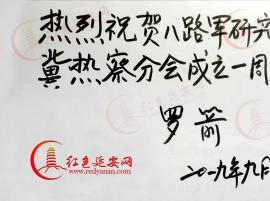 热烈祝贺八路军研究
冀热察分会成立一周
罗箭
红色延安网
www.redyanan.com
二〇一九年九月